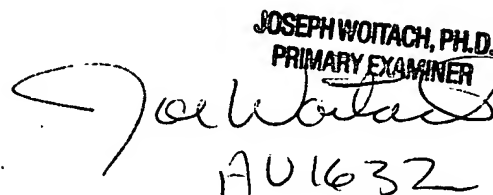 JOSEPH WOITACH, PH.D.
PRIMARY EXAMINER
Joe Woitach
AU1632